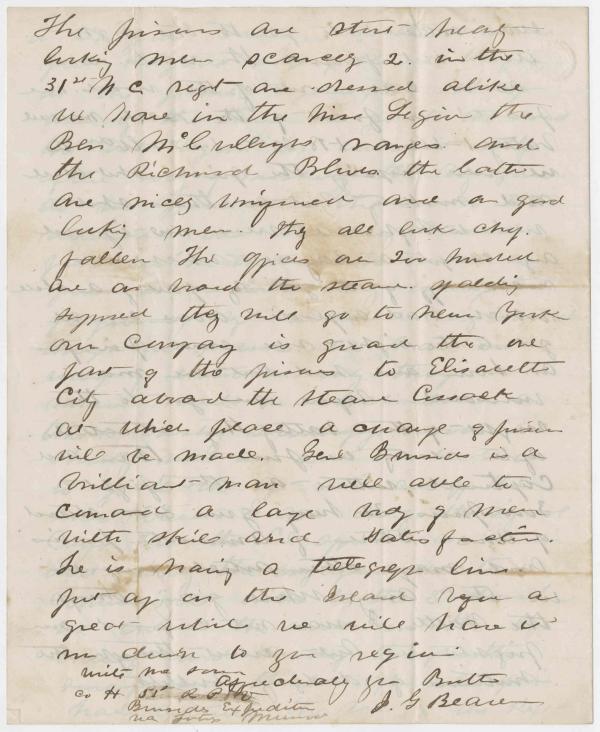 The prisners are stout hearty
lucking men scarcely 2 in the
31st N C regt are dressed alike
we have in the Wise Legion the
Ben McCulloughs rangers and
the Richmond Blues the latter
are nicely uniformed and are good
lucking men. they all luck chop
fallen The officers over 200 hundred
are on board the steamer Spalding
supposed they will go to New York
our Company is to guard the one
part of the prisners to Elisabeth
City aboard the steamer Cossack
at which place a change of prisners
will be made. Genl Burnside is a
brilliant man well able to
comand a large body of men
with skill and Satisfaction.
he is having a telegraph line
put up on the Island upon a
great which we will have is
no to your
write me soon
affectionately your Brother
Co H 51st R P V
Burnsides Expedition
via Fortress Munroe
J. G Beaver